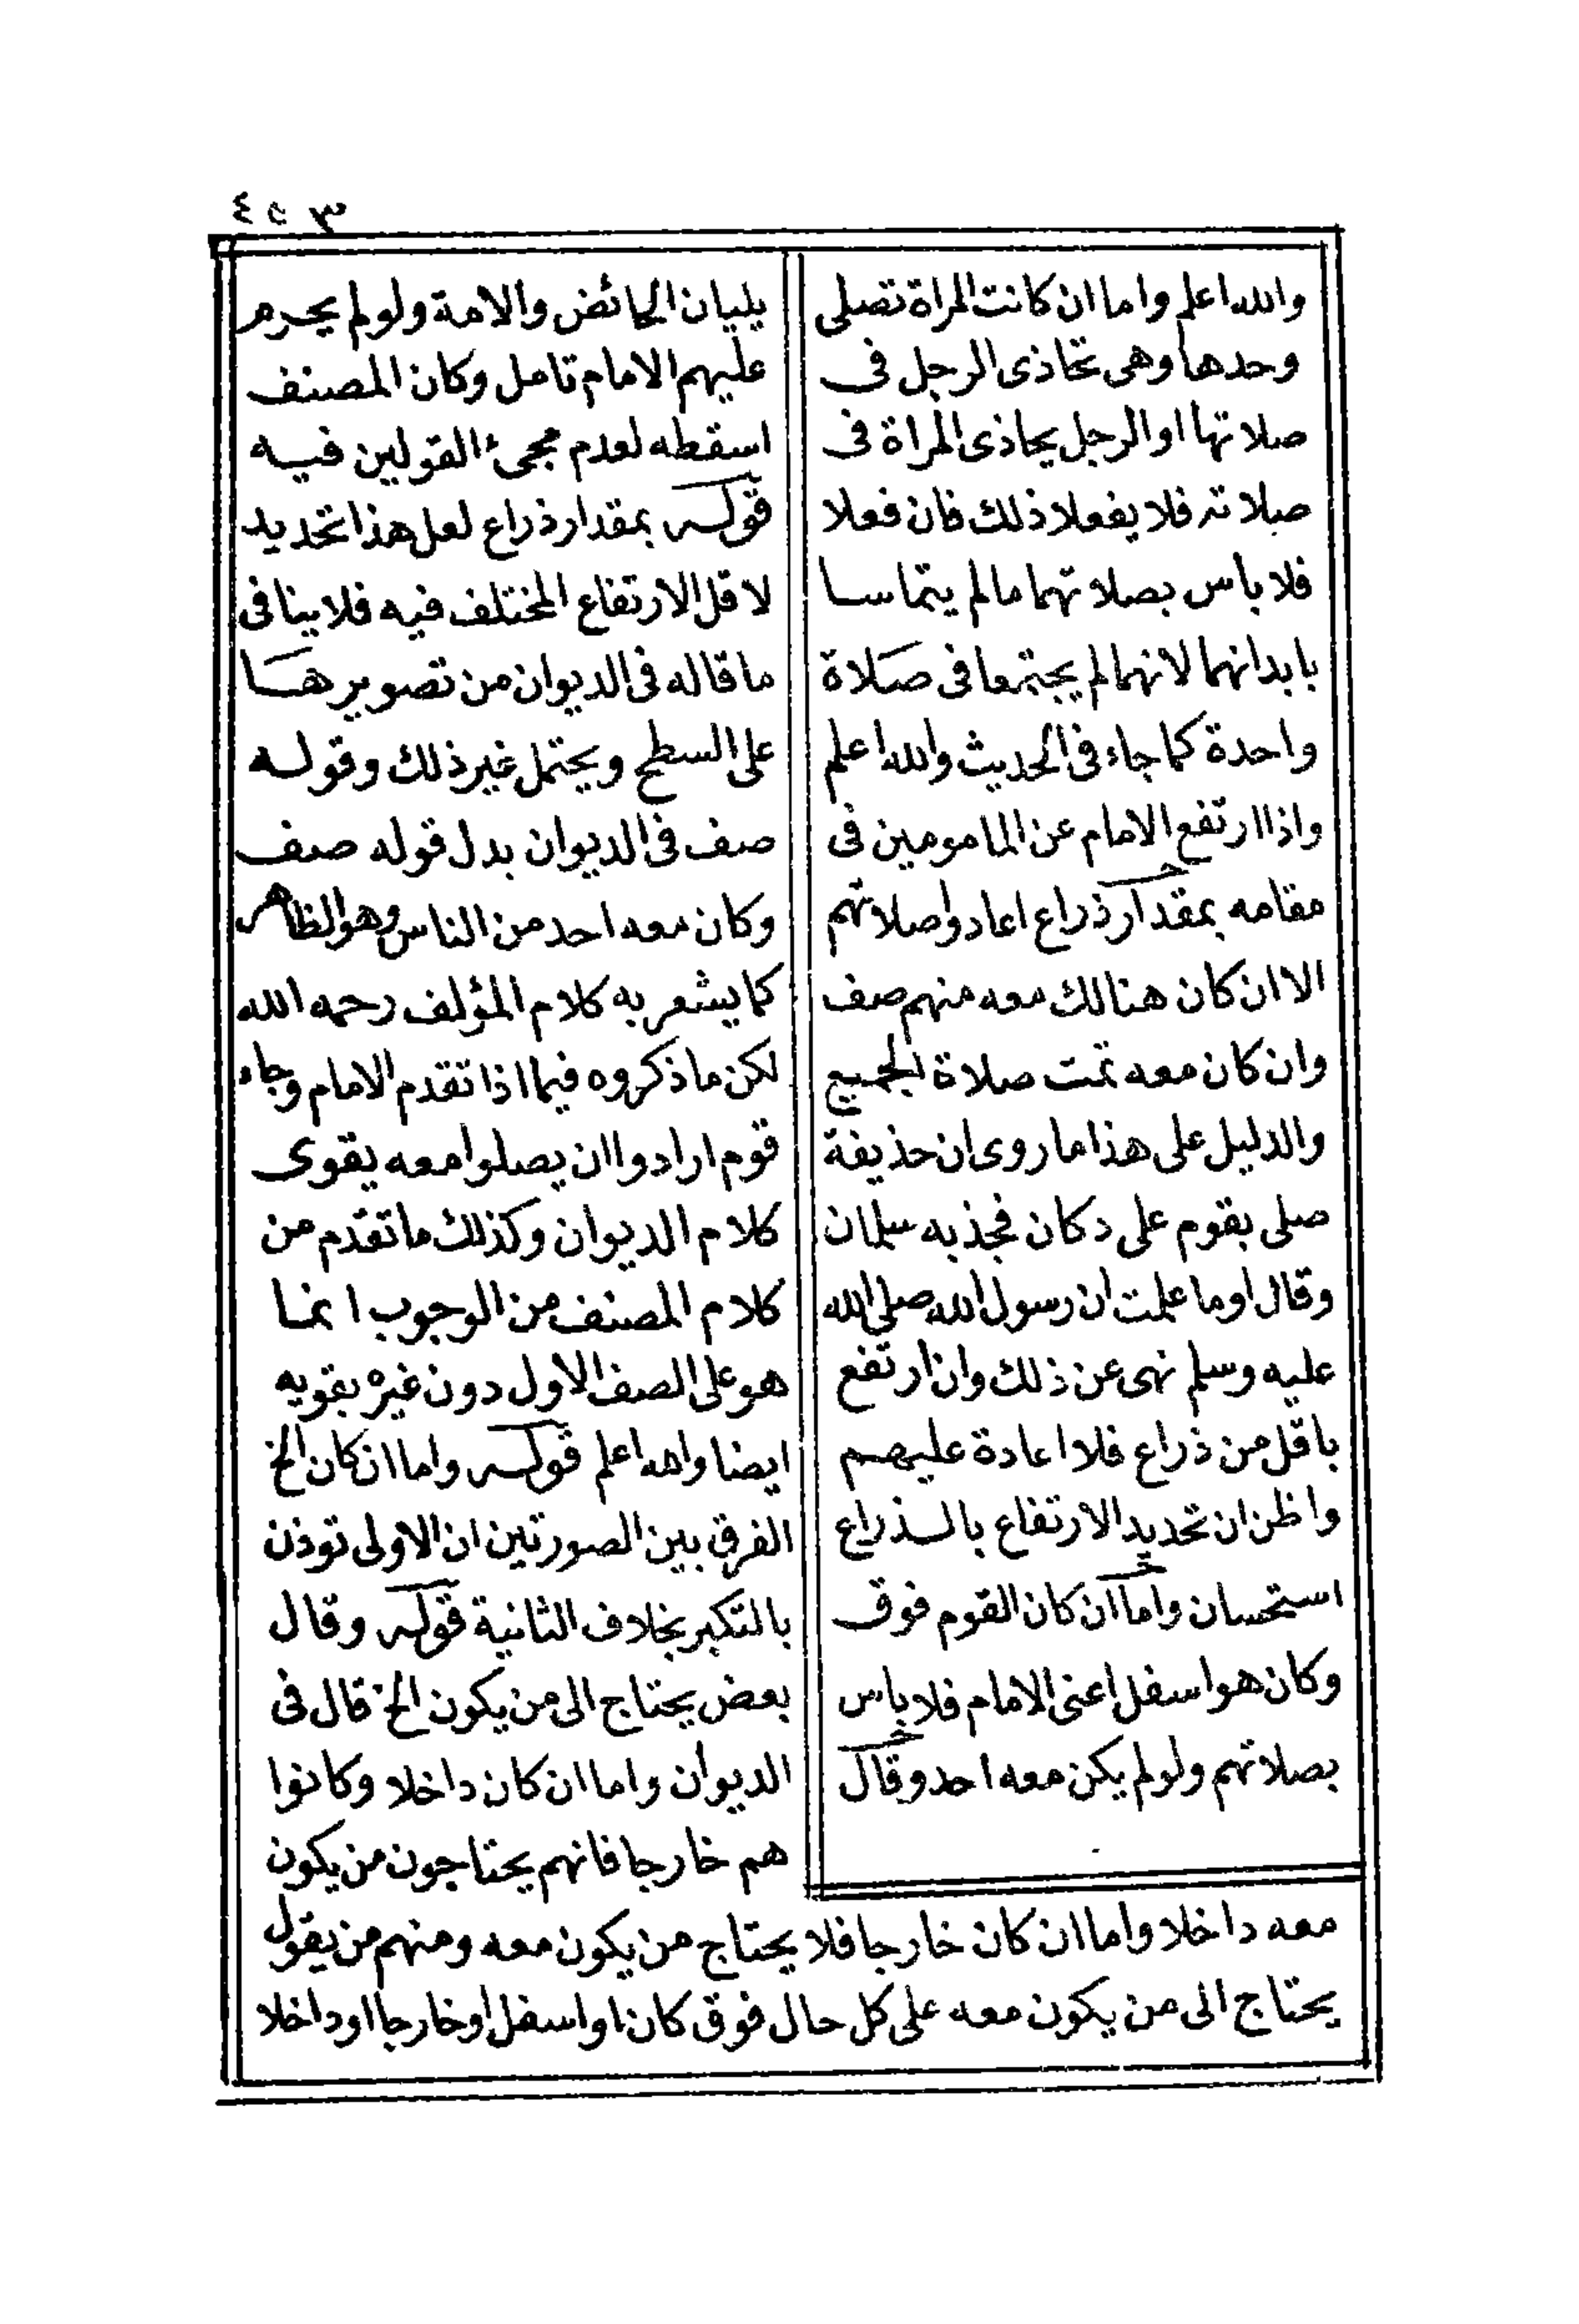 ٤٥٣
والله اعلم واما ان كانت المراة تصلى
وحدها وهى تحاذى الرجل فى
صلاتها او الرجل يحاذى المراة فى
صلاته فلا يفعلا ذلك فان فعلا
فلا باس بصلاتهما مالم يتماسا
بابدانهما لانهما لم يجتمعا فى صلاة
واحدة كما جاء فى الحديث والله اعلم
واذا ارتفع الامام عن المامومين فى
مقامه بمقدار ذراع اعادوا صلاتهم
الا ان كان هنالك معه منهم صف
وان كان معه تمت صلاة الجميع
والدليل على هذا ما روى ان حذيفة
صلى بقوم على دكان فجذبه سلمان
وقال اوما علمت ان رسول الله صلى الله
عليه وسلم نهى عن ذلك وان ارتفع
باقل من ذراع فلا اعادة عليهم
واظن ان تحديد الارتفاع بالذراع
استحسان واما ان كان القوم فوق
وكان هو اسفل اعنى الامام فلا باس
بصلاتهم ولو لم يكن معه احد وقال
يليان الحائض والامة ولو لم يحرم
عليهم الامام تامل وكان المصنف
اسقطه لعدم مجئ القولين فيه
قوله بمقدار ذراع لعل هذا تحديد
لاقل الارتفاع المختلف فيه فلا ينافى
ما قاله فى الديوان من تصويرها
على السطح ويحتمل غير ذلك وقوله
صف فى الديوان بدل قوله صف
وكان معه احد من الناس وهو الظاهر
كما يشعر به كلام المؤلف رحمه الله
لكن ما ذكروه فيما اذا تقدم الامام وجاء
قوم ارادوا ان يصلوا معه يقوى
كلام الديوان وكذلك ما تقدم من
كلام المصنف من الوجوب انما
هو على الصف الاول دون غيره يقويه
ايضا والله اعلم قوله واما ان كان الخ
الفرق بين الصورتين ان الاولى توذن
بالتكبر بخلاف الثانية قوله وقال
بعض يحتاج الى من يكون الخ قال فى
الديوان واما ان كان داخلا وكانوا
هم خارجا فانهم يحتاجون من يكون
معه داخلا واما ان كان خارجا فلا يحتاج من يكون معه ومنهم من يقول
يحتاج الى من يكون معه على كل حال فوق كان او اسفل او خارجا او داخلا